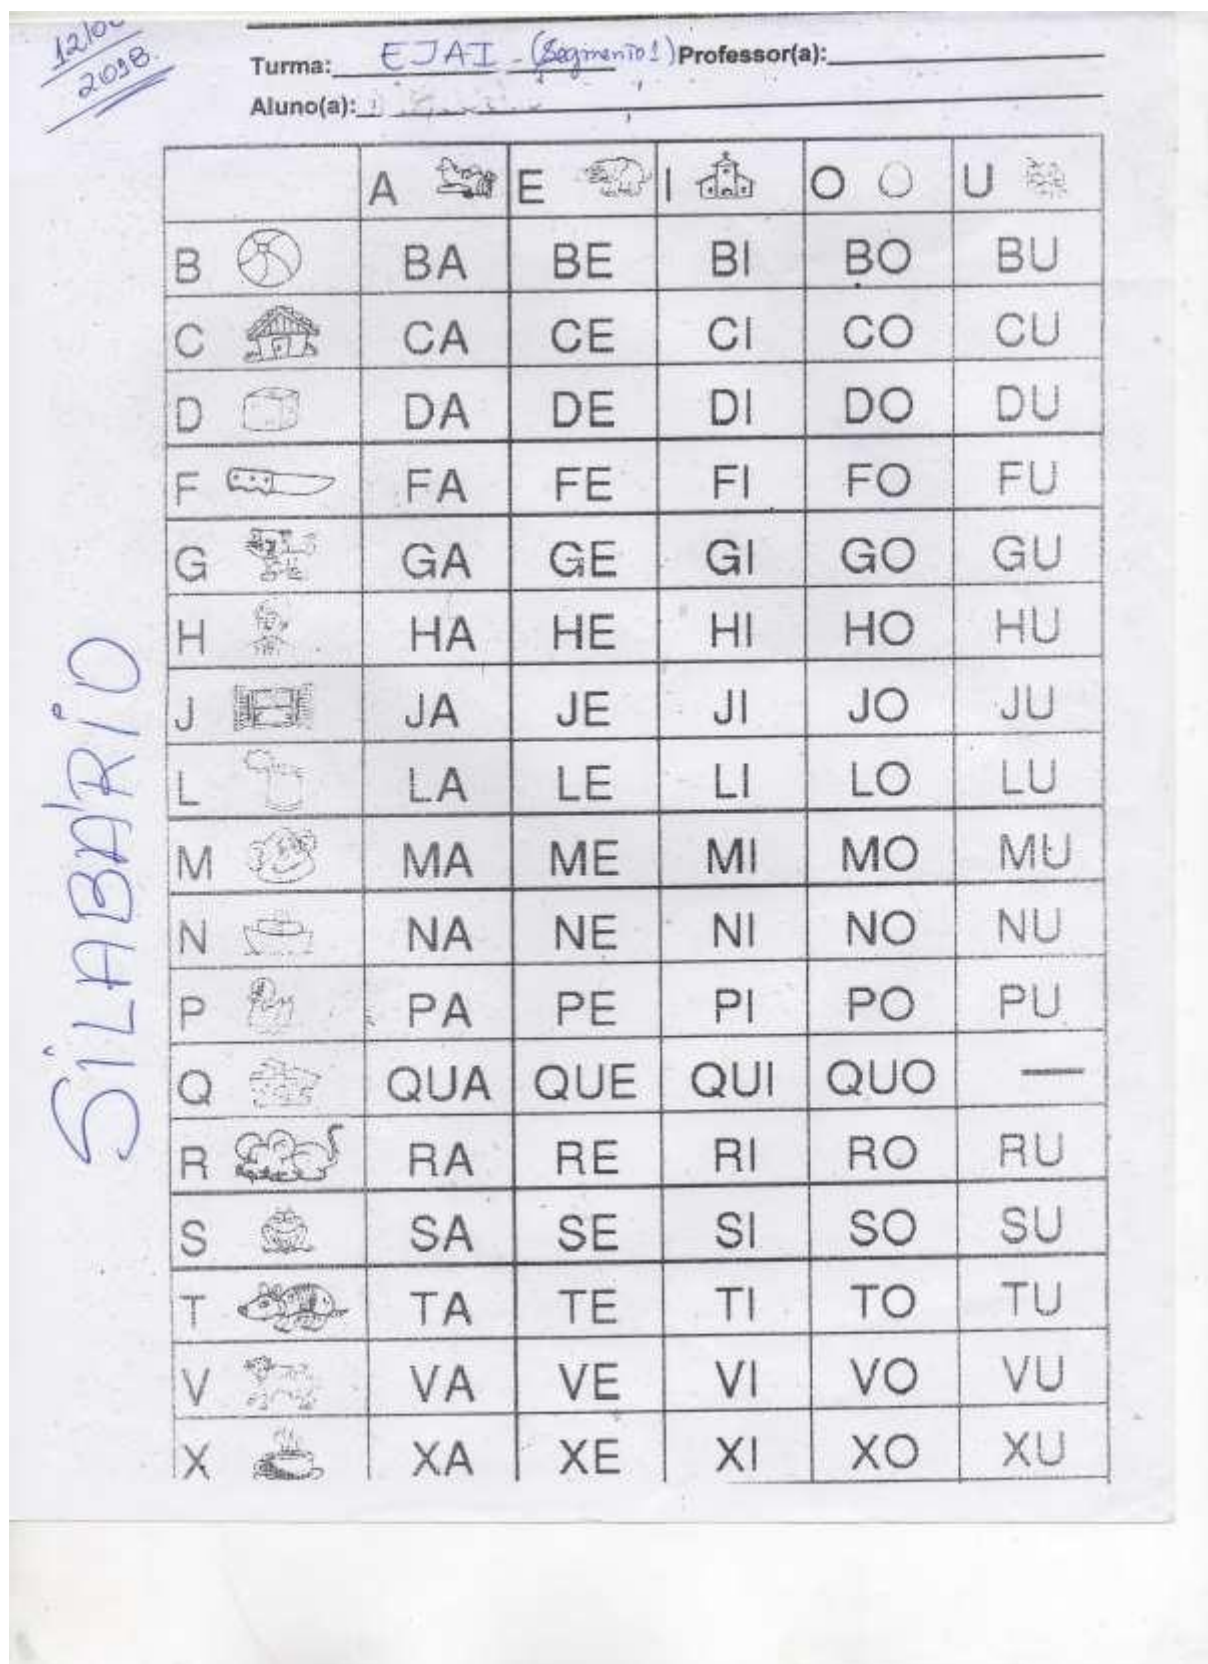 2018.
Turma: EJAI - (Segmento 1) Professor(a):
Aluno(a):
A E I O U
B BA BE BI BO BU
C CA CE CI CO CU
D DA DE DI DO DU
F FA FE FI FO FU
G GA GE GI GO GU
H HA HE HI HO HU
J JA JE JI JO JU
L LA LE LI LO LU
M MA ME MI MO MU
N NA NE NI NO NU
P PA PE PI PO PU
Q QUA QUE QUI QUO —
R RA RE RI RO RU
S SA SE SI SO SU
T TA TE TI TO TU
V VA VE VI VO VU
X XA XE XI XO XU
SILABÁRIO